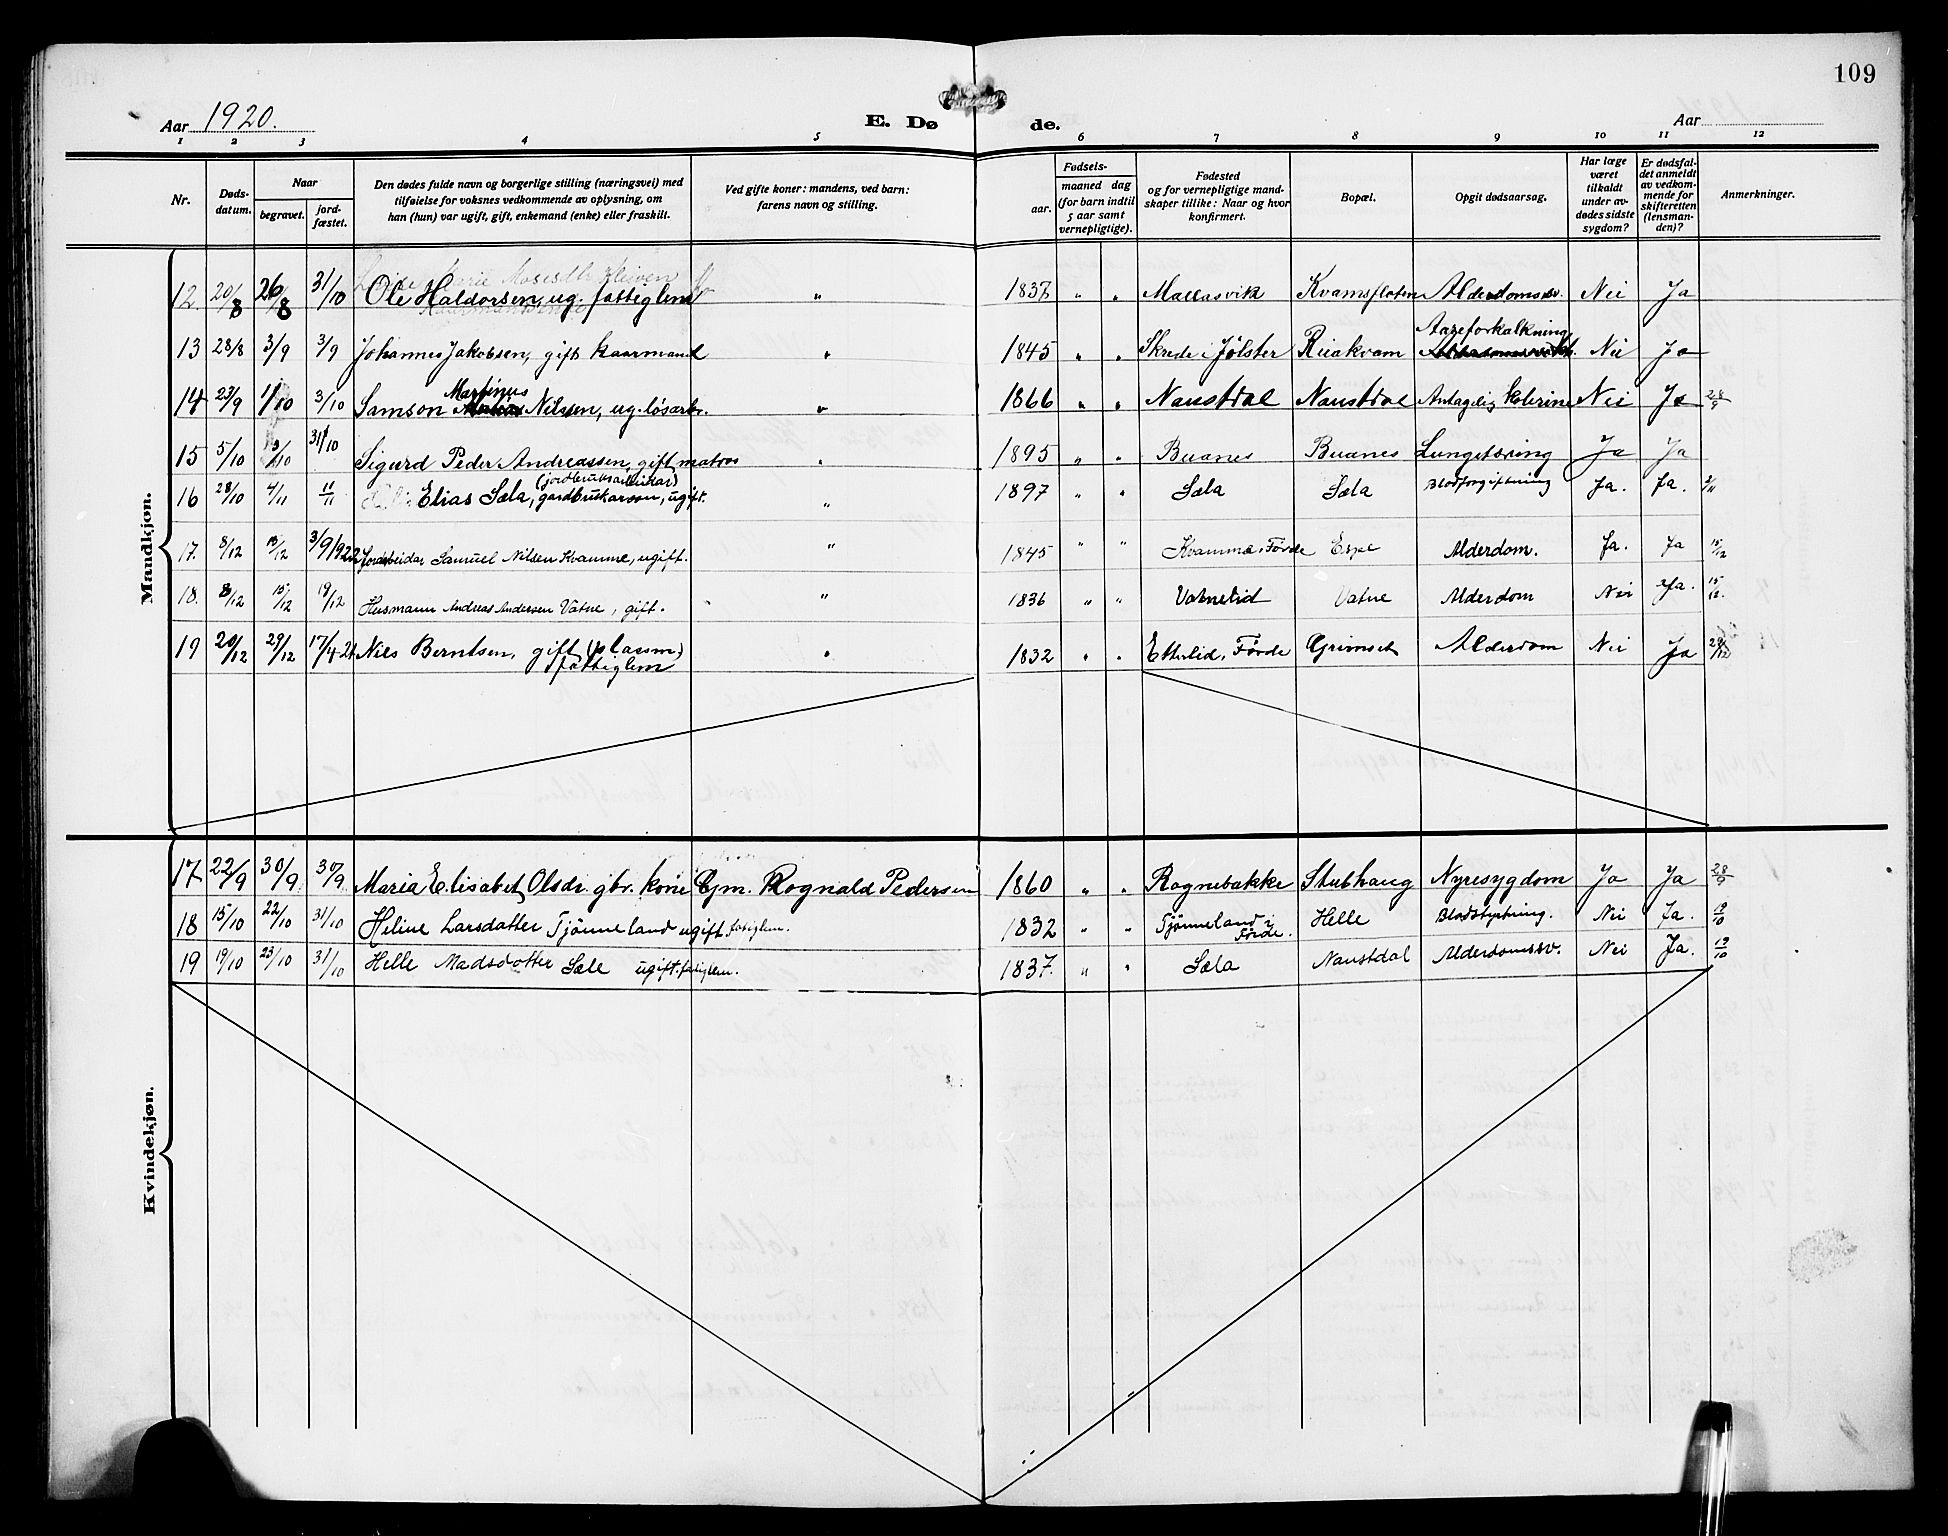 109
Aar 1920.
E. Dø de.
Aar
1 2 3 4 5 6 7 8 9 10 11 12
Nr.
Døds-
datum.
Naar
begravet.
jord-
fæstet.
Den dødes fulde navn og borgerlige stilling (næringsvei) med
tilføielse for voksnes vedkommende av oplysning, om
han (hun) var ugift, gift, enkemand (enke) eller fraskilt.
Ved gifte koner: mandens, ved barn:
farens navn og stilling.
Fødsels-
aar.
maaned dag
(for barn indtil
5 aar samt
vernepligtige).
Fødested
og for vernepligtige mand-
skaper tillike: Naar og hvor
konfirmert.
Bopæl.
Opgit dødsaarsag.
Har læge
været
tilkaldt
under av-
dødes sidste
sygdom?
Er dødsfal-
det anmeldt
av vedkom-
mende for
skifteretten
(lensman-
den)?
Anmerkninger.
Mandkjøn.
12 20/8 26/8 31/10 Ole Haldorsen, ug. fattiglem " 1837 " " Kvamsfloten Alderdomssv. Nei Ja
13 28/8 3/9 3/9 Johannes Jakobsen, gift kaarmand " 1845 " " Skrede i Jølster Kvam Aareforkalkning Nei Ja
14 23/9 1/10 3/10 Samson Martinus Nilsen, ug. løsarb. " 1866 " " Naustdal Naustdal Antagelig kolerine Nei Ja 28/9
15 5/10 /10 31/10 Sigurd Peder Andreassen, gift matros " 1895 " " Buanes Buanes Lungetæring Ja Ja
16 28/10 4/11 11/11 Elias Sæla, (jordbruksarbeidar) gardbrukarson, ugift. " 1897 " " Sæla Sæla Blodforgiftning Ja. Ja. 2/11
17. 8/12 15/12 3/9 1922 Jordarbeidar Samuel Nilsen Kvamme, ugift. " 1845 " " Kvamme, Førde Espe Alderdom. Ja. Ja 15/12
18. 8/12 15/12 19/12 Husmann Andreas Andersen Vatne, gift. " 1836 " " Vatnelid Vatne Alderdom Nei Ja. 15/12.
19 20/12 29/12 17/4 21 Nils Berntsen, gift (plassm) fattiglem " 1832 " " Etterlid, Førde Grimset Alderdom Nei Ja 29/12
Kvindekjøn.
17 22/9 30/9 30/9 Maria Elisabet Olsdr. gbr. kone Gm. Rognald Pedersen 1860 " " Rognebakke Stubhaug Nyresygdom Ja Ja 28/9
18 15/10 22/10 31/10 Heline Larsdatter Tjønneland ugift fatiglem. 1832 " " Tjønneland i Førde. Helle Blodstyrtning. Nei Ja. 19/10
19 19/10 23/10 31/10 Helle Madsdotter Sæle ugift. fatiglem. 1837. " " Sæla Naustdal Alderdomssv. Nei Ja. 19/10